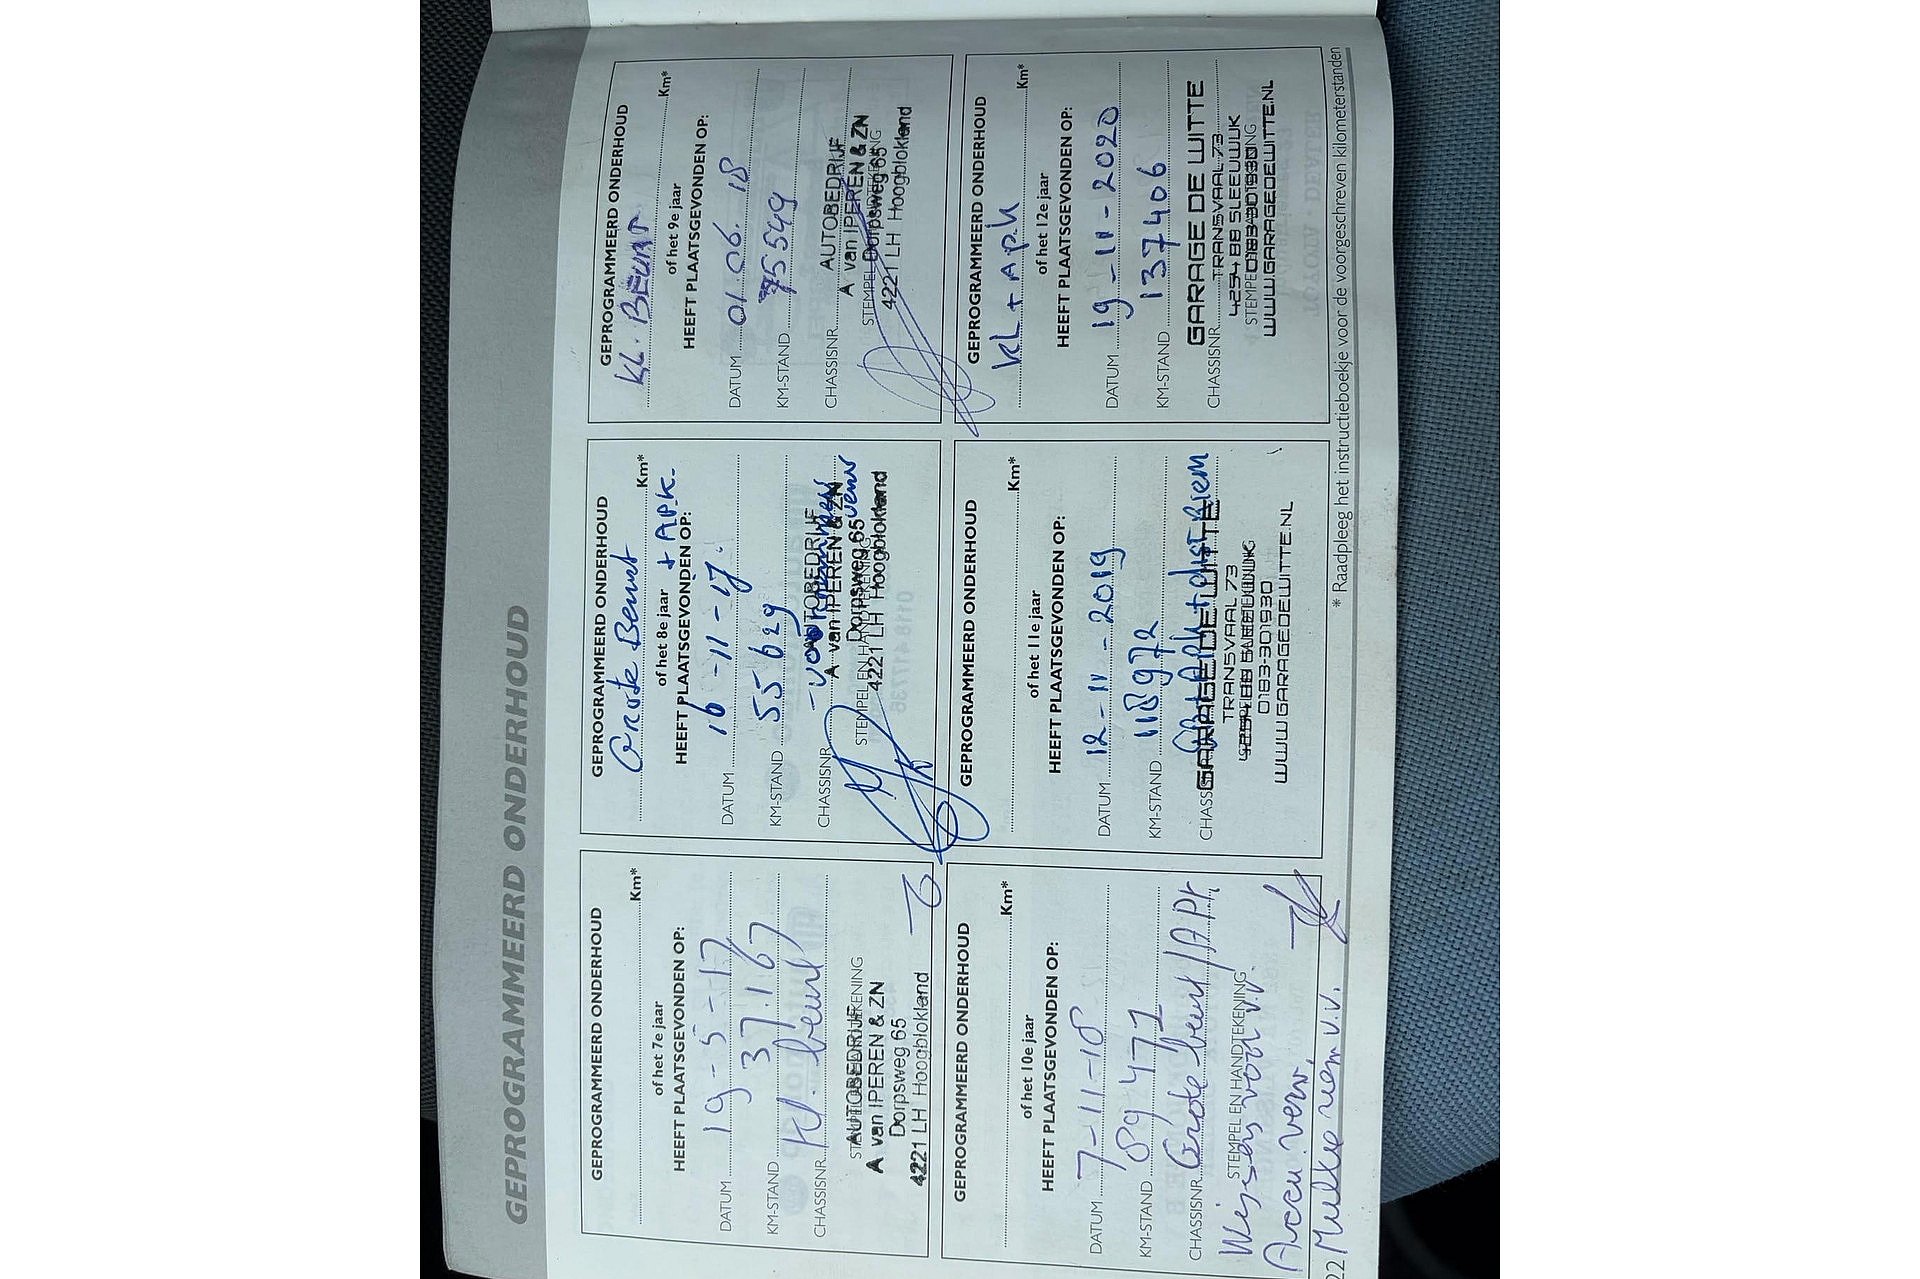 GEPROGRAMMEERD ONDERHOUD
GEPROGRAMMEERD ONDERHOUD
Km*
of het 7e jaar
HEEFT PLAATSGEVONDEN OP:
DATUM 19-5-17
KM-STAND 37.167
CHASSISNR. Kl. beurt
STEMPEL EN HANDTEKENING
AUTOBEDRIJF
A van IPEREN & ZN
Dorpsweg 65
4221 LH Hoogblokland
GEPROGRAMMEERD ONDERHOUD
Grote Beurt
Km*
of het 8e jaar + APK.
HEEFT PLAATSGEVONDEN OP:
DATUM 16-11-17.
KM-STAND 55629
CHASSISNR.
STEMPEL EN HANDTEKENING
AUTOBEDRIJF
A van IPEREN & ZN
Dorpsweg 65
4221 LH Hoogblokland
GEPROGRAMMEERD ONDERHOUD
KL. BEURT
Km*
of het 9e jaar
HEEFT PLAATSGEVONDEN OP:
DATUM 01.06.18
KM-STAND 75549
CHASSISNR.
STEMPEL EN HANDTEKENING
AUTOBEDRIJF
A van IPEREN & ZN
Dorpsweg 65
4221 LH Hoogblokland
GEPROGRAMMEERD ONDERHOUD
Km*
of het 10e jaar
HEEFT PLAATSGEVONDEN OP:
DATUM 7-11-18
KM-STAND 89477
CHASSISNR. Grote beurt/APK
STEMPEL EN HANDTEKENING
v.v.
Accu verv.
22 riem v.v.
GEPROGRAMMEERD ONDERHOUD
Km*
of het 11e jaar
HEEFT PLAATSGEVONDEN OP:
DATUM 12-11-2019
KM-STAND 118972
CHASSISNR. + distriem
GARAGE DE WITTE
TRANSVAAL 73
0183-301930
WWW.GARAGEDEWITTE.NL
GEPROGRAMMEERD ONDERHOUD
KL + APK
Km*
of het 12e jaar
HEEFT PLAATSGEVONDEN OP:
DATUM 19-11-2020
KM-STAND 137406
CHASSISNR.
GARAGE DE WITTE
TRANSVAAL 73
4254 BB SLEEUWIJK
STEMPEL EN HANDTEKENING
0183-301930
WWW.GARAGEDEWITTE.NL
* Raadpleeg het instructieboekje voor de voorgeschreven kilometerstanden